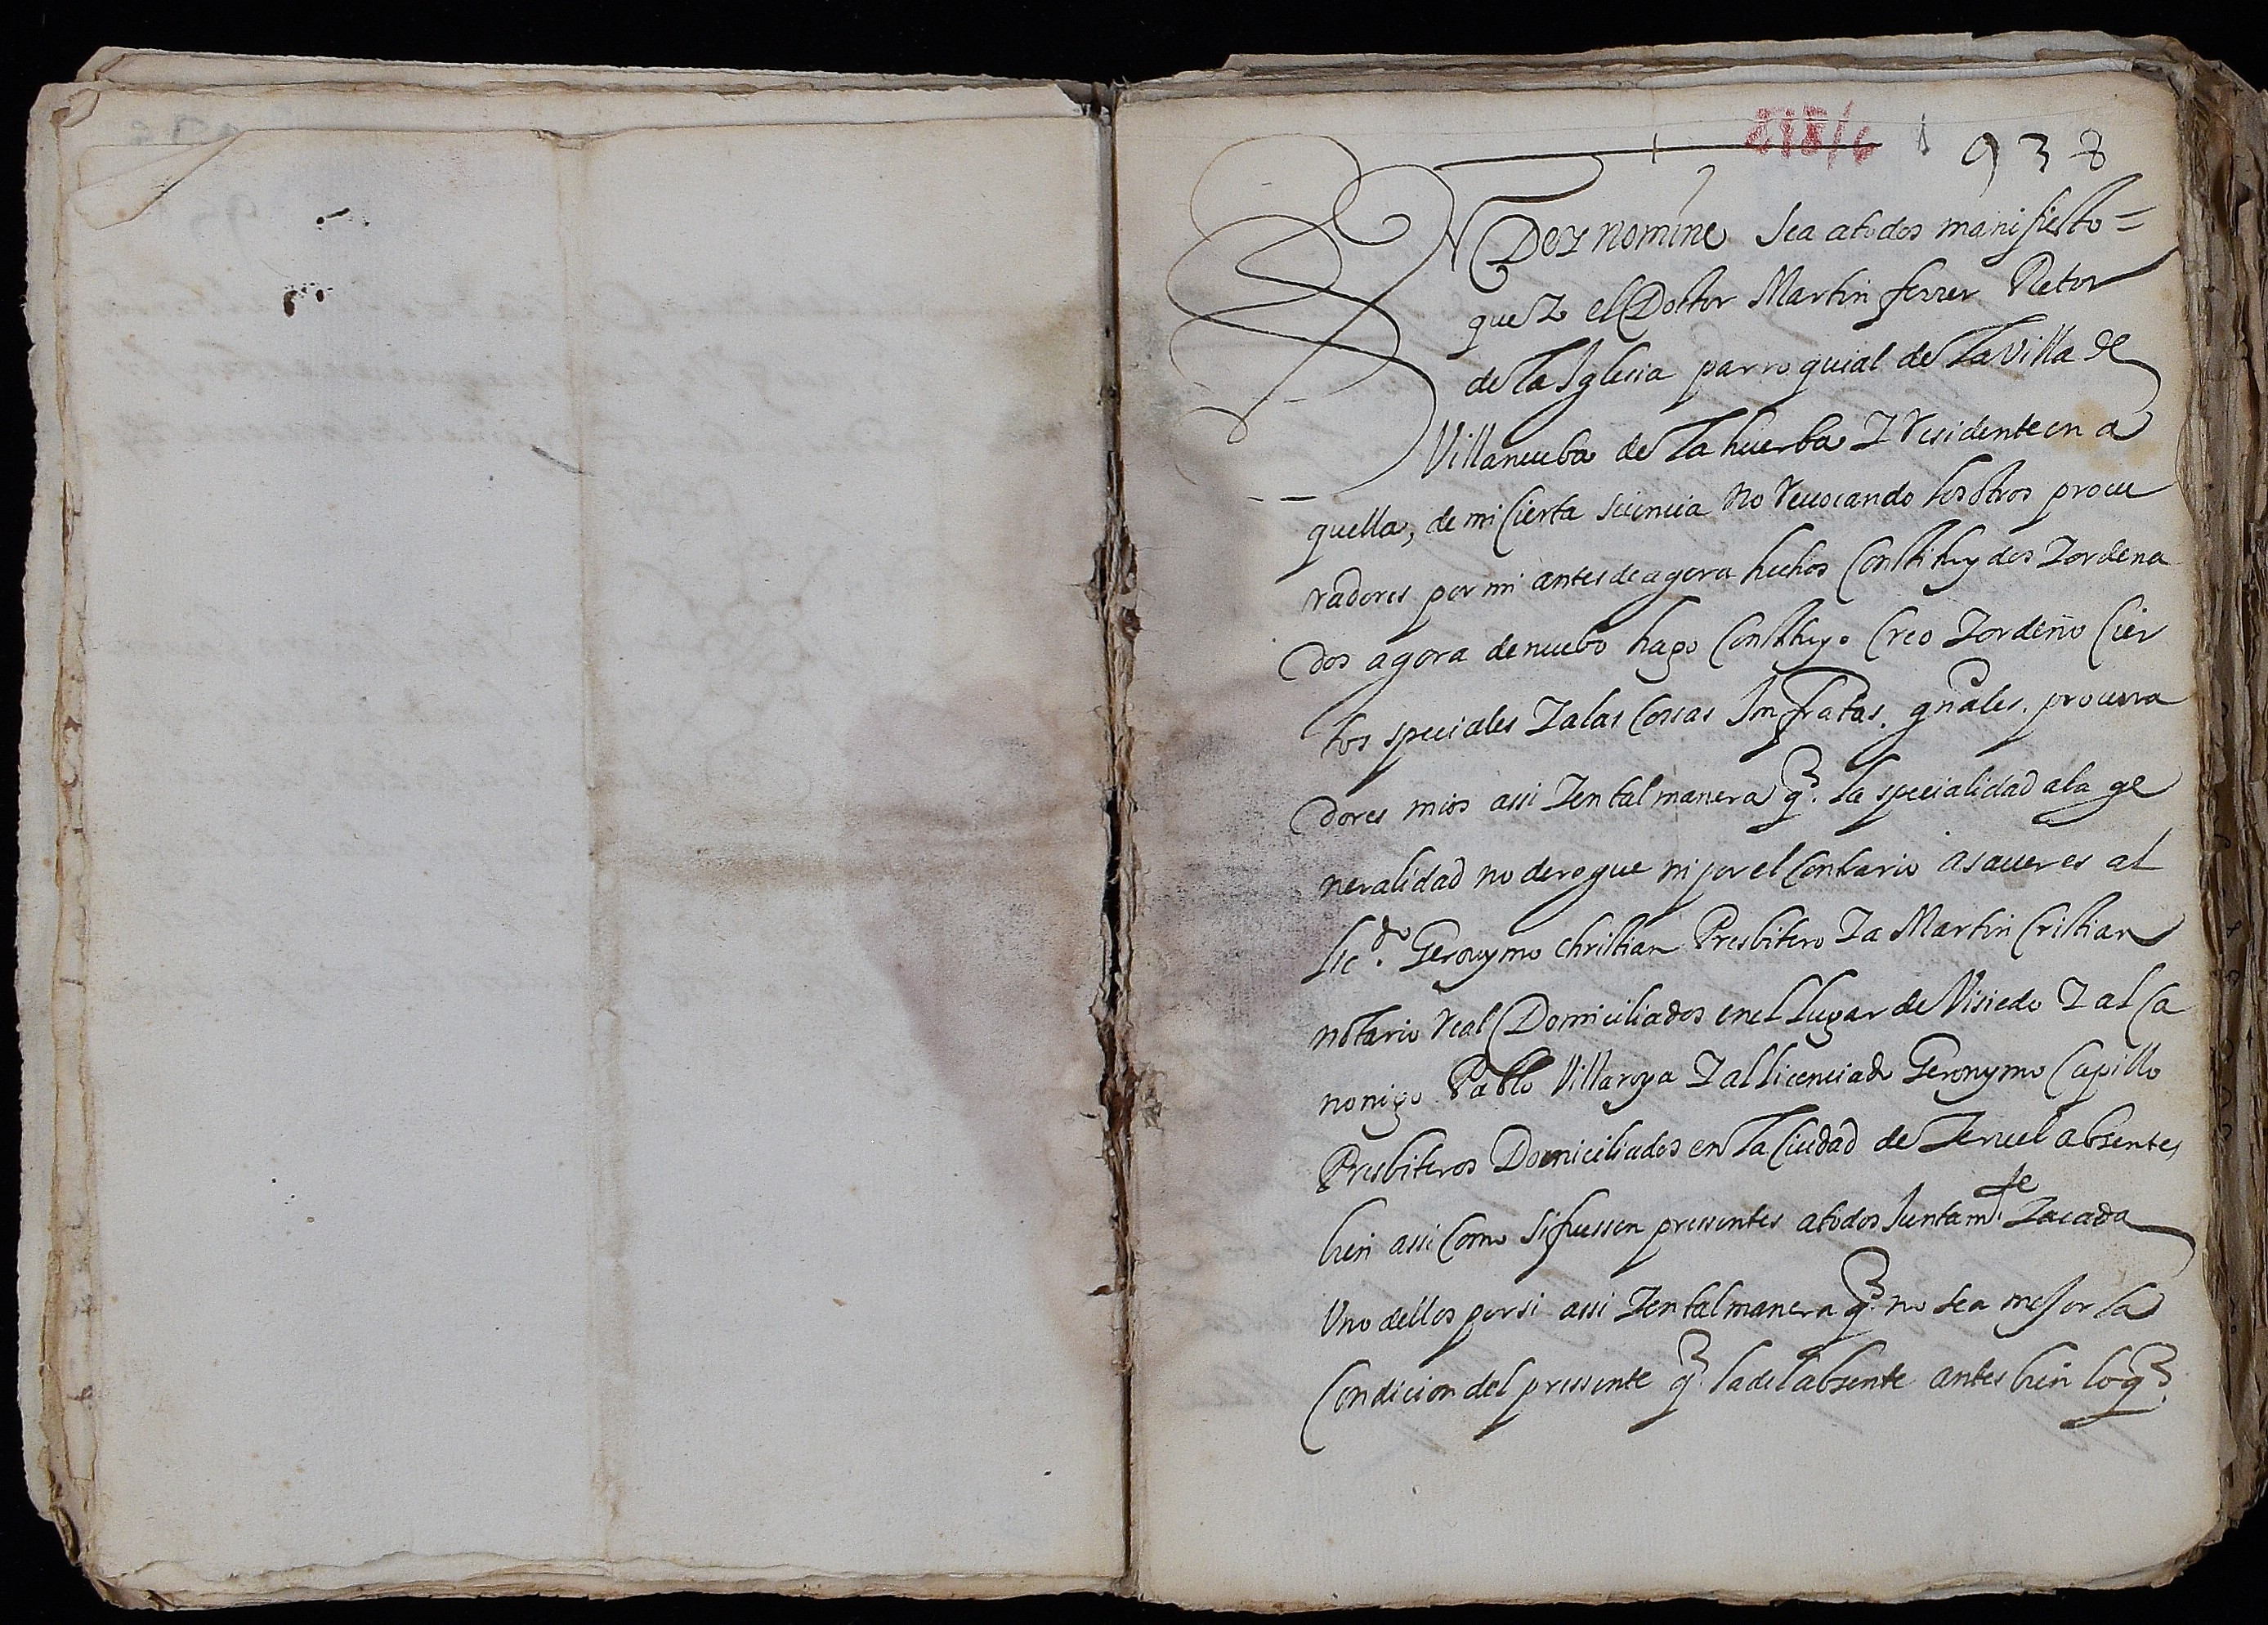 1 938
IN Dei nomine sea a todos manifiesto =
que Yo el Dottor Martin ferrer Retor
de la Iglesia parroquial de la Villa de
Villanueba de la huerba Y residente en a
quella, de mi cierta sciencia no reuocando los otros procu
radores por mi antes de agora hechos constituydos Y ordena
dos agora de nuebo hago constituyo creo Y ordeno cier
tos speciales Y a las cossas Infrãtas. gñales. procura
dores mios assi Y en tal manera q. la specialidad a la ge
neralidad no derogue ni por el contrario a sauer es al
Licdo. Geronymo christian Presbitero Y a Martin Cristian
notario real Domiciliados en el lugar de Visiedo Y al ca
nonigo Pablo Villaroya Y al licenciado Geronymo Capillo
Presbiteros Domiciliados en la Ciudad de Teruel absentes
bien assi como si fuessen pressentes a todos Juntamte Y a cada
Uno dellos por si assi Y en tal manera q. no sea mejor la
condicion del pressente q. la del absente antes bien lo q.